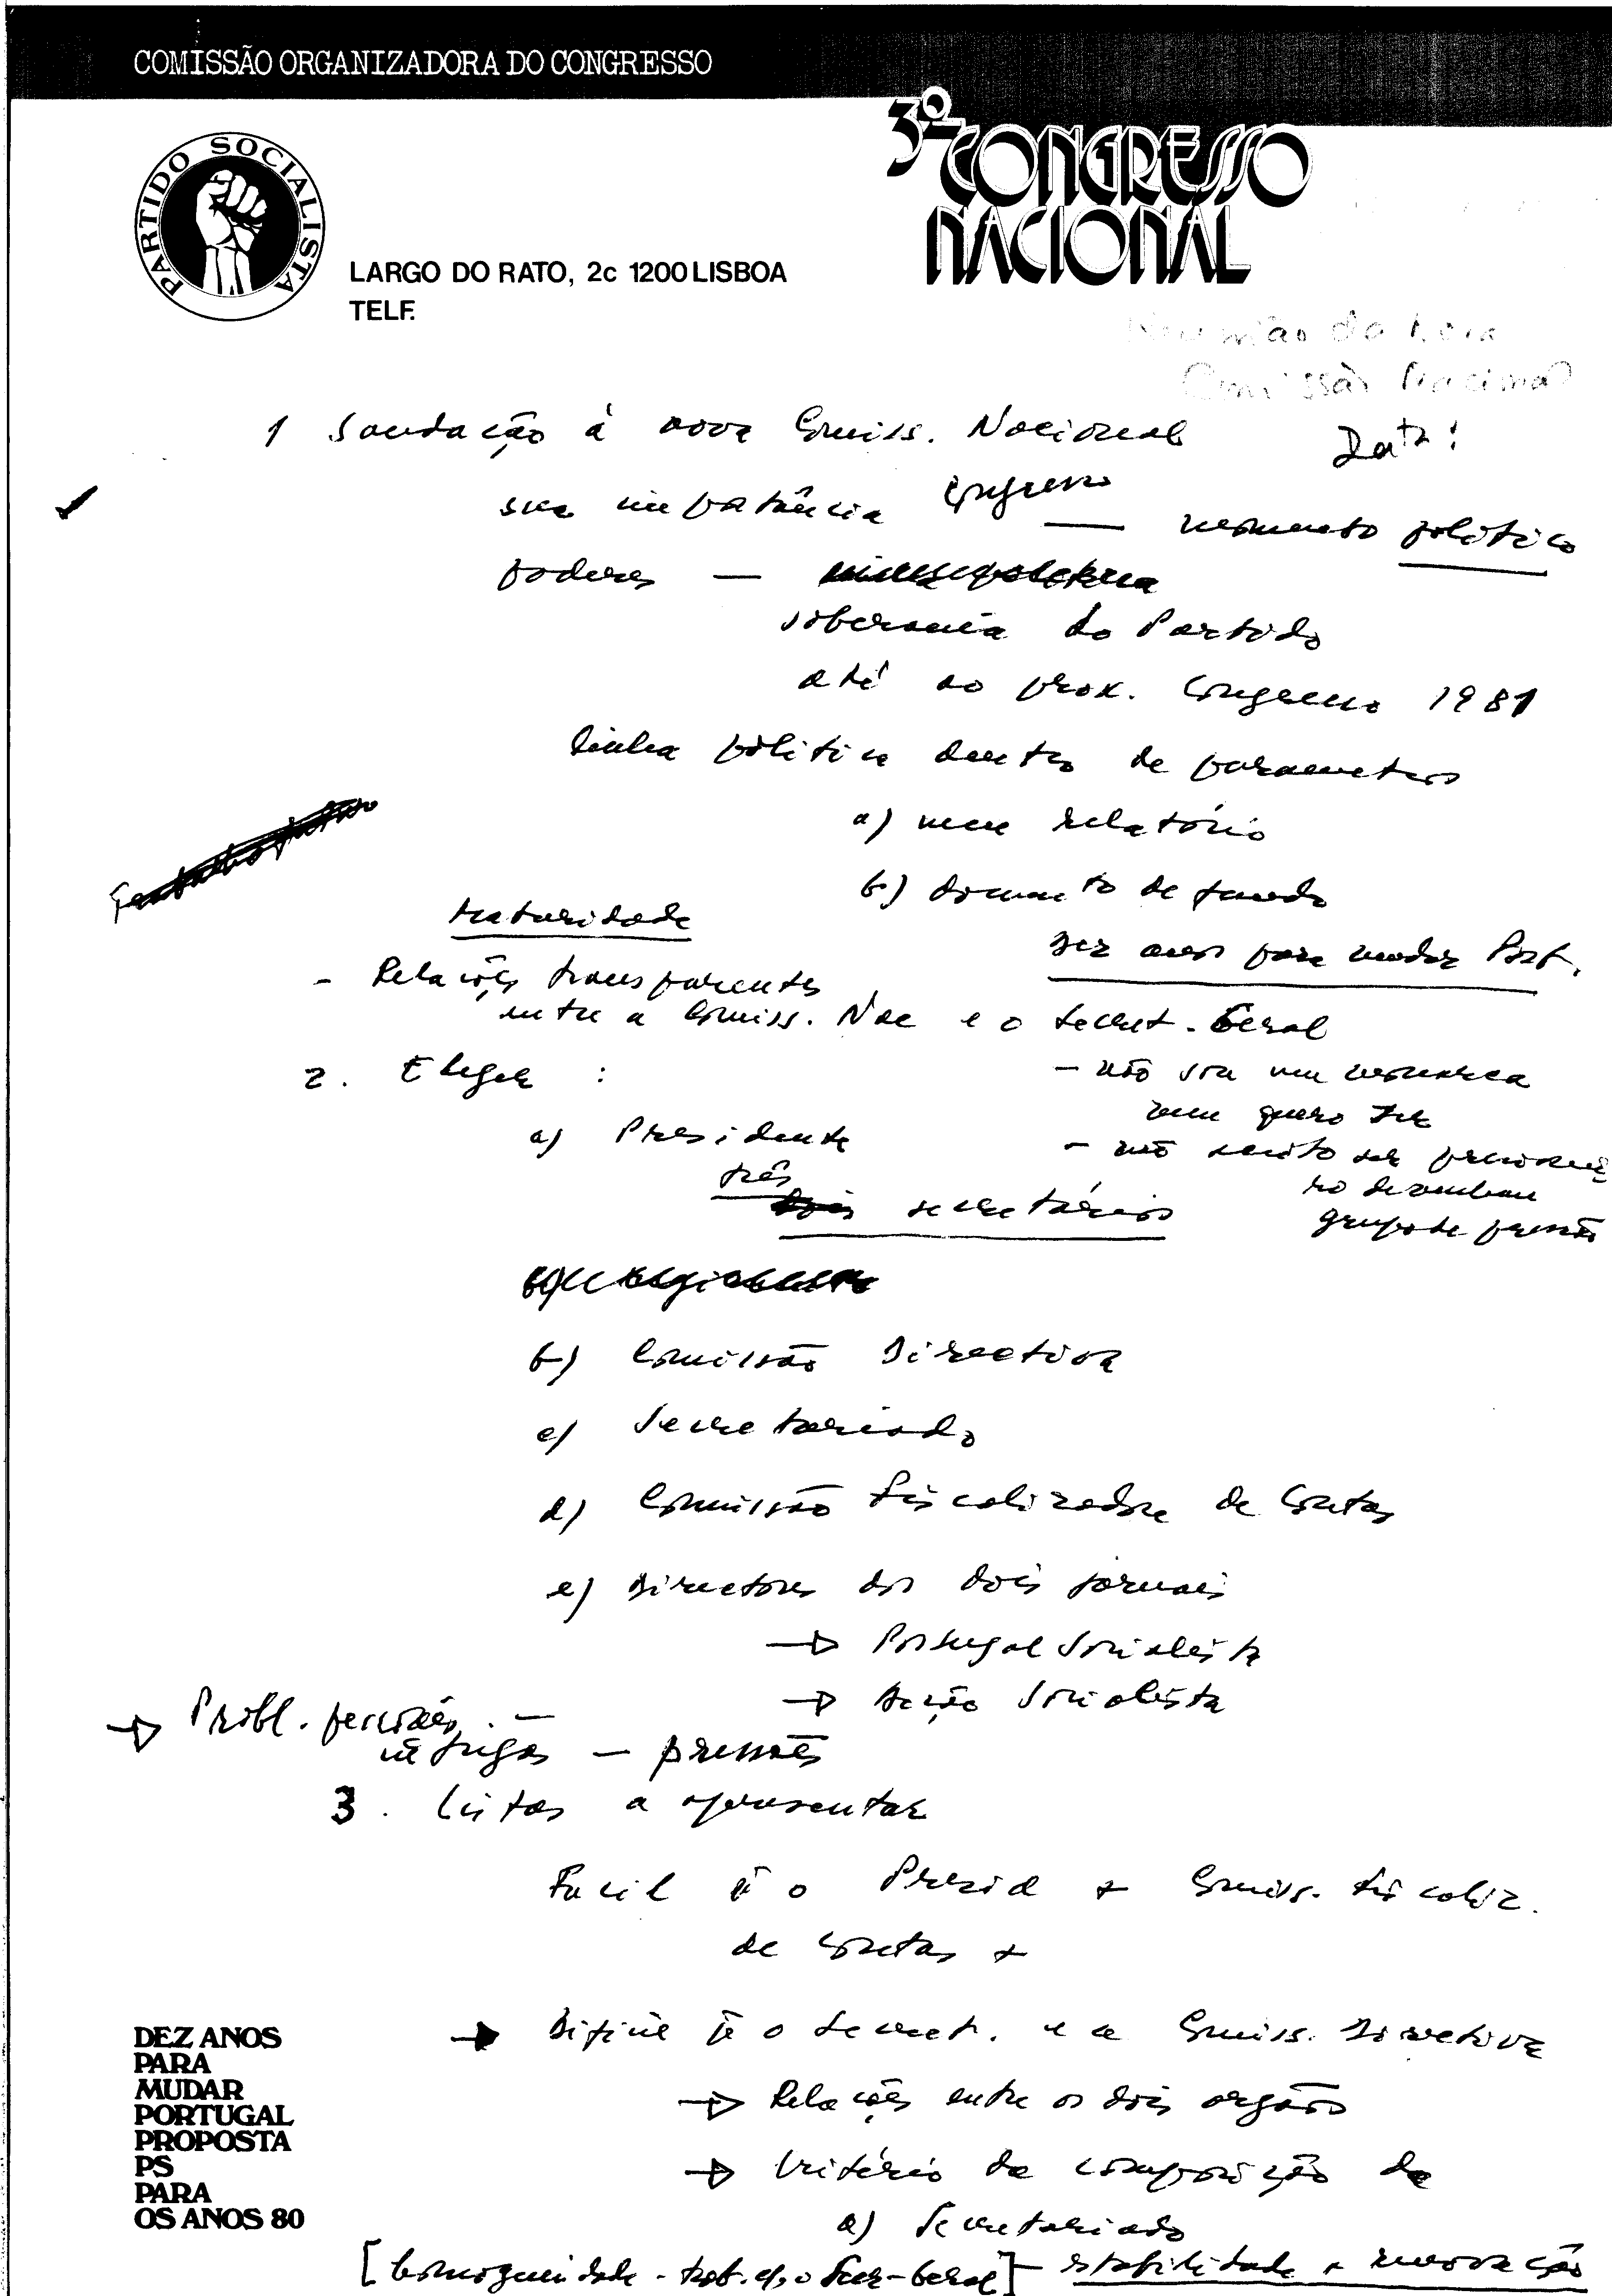 COMISSÃO ORGANIZADORA DO CONGRESSO
3º CONGRESSO
NACIONAL
PARTIDO SOCIALISTA
LARGO DO RATO, 2c 1200 LISBOA
TELF.
Comissão Nacional
Data:
1 Saudação à nova Comiss. Nacional
sua importância Congresso — momento político
poderes —
soberania do Partido
até ao prox. Congresso 1981
linha politica dentro de parametros
a) meu relatório
b) documento de fundo
Dez anos para mudar Port.
maturidade
- Relações transparentes
entre a Comiss. Nac e o Secret. Geral
- não sou um monarca
nem quero ser
- não aceito ser prisionei
ro de nenhum
grupo de pressão
2. Eleger :
a) Presidente
três
secretários
b) Comissão Directiva
c) Secretariado
d) Comissão Fiscalizadora de Contas
e) Directores dos dois jornais
→ Portugal Socialista
→ Acção Socialista
→ Probl. pessoais. —
intrigas — pressões
3. Listas a apresentar
Facil é o Presid + Comiss. Fiscaliz.
de Contas +
→ Dificil é o Secret. e a Comiss. Directiva
→ Relações entre os dois orgãos
→ Critério da composição de
a) Secretariado
[homogeneidade - trab. c/ o Secr-Geral] - estabilidade + renovação
DEZ ANOS
PARA
MUDAR
PORTUGAL
PROPOSTA
PS
PARA
OS ANOS 80